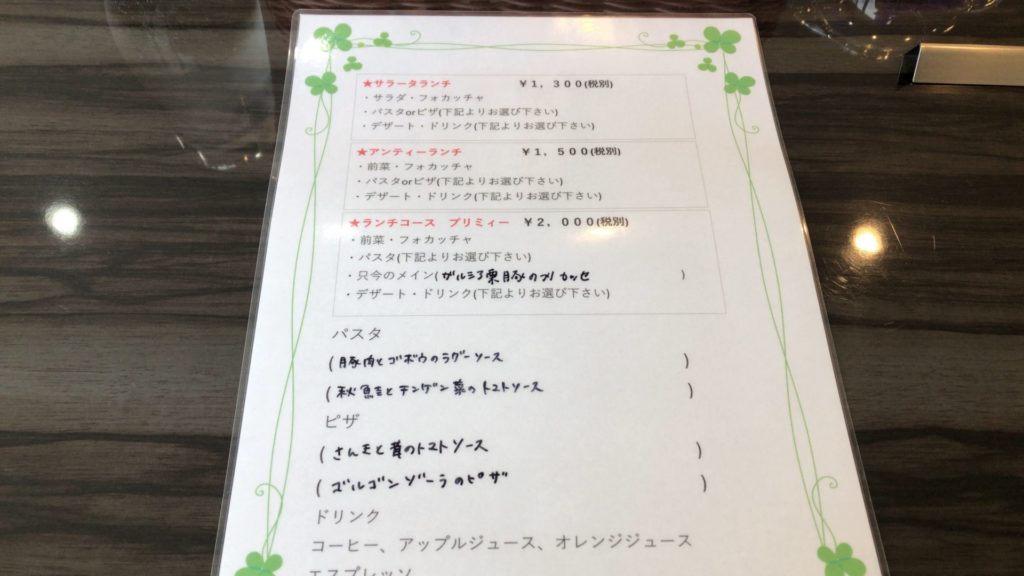 ★サラータランチ ￥１，３００(税別)
・サラダ・フォカッチャ
・パスタorピザ(下記よりお選び下さい)
・デザート・ドリンク(下記よりお選び下さい)
★アンティーランチ ￥１，５００(税別)
・前菜・フォカッチャ
・パスタorピザ(下記よりお選び下さい)
・デザート・ドリンク(下記よりお選び下さい)
★ランチコース プリミィー ￥２，０００(税別)
・前菜・フォカッチャ
・パスタ(下記よりお選び下さい)
・只今のメイン( 栗豚の )
・デザート・ドリンク(下記よりお選び下さい)
パスタ
(豚肉とゴボウのラグーソース )
(秋 と チンゲン菜のトマトソース )
ピザ
(さんまと茸のトマトソース )
(ゴルゴンゾーラのピザ )
ドリンク
コーヒー、アップルジュース、オレンジジュース
エスプレッソ